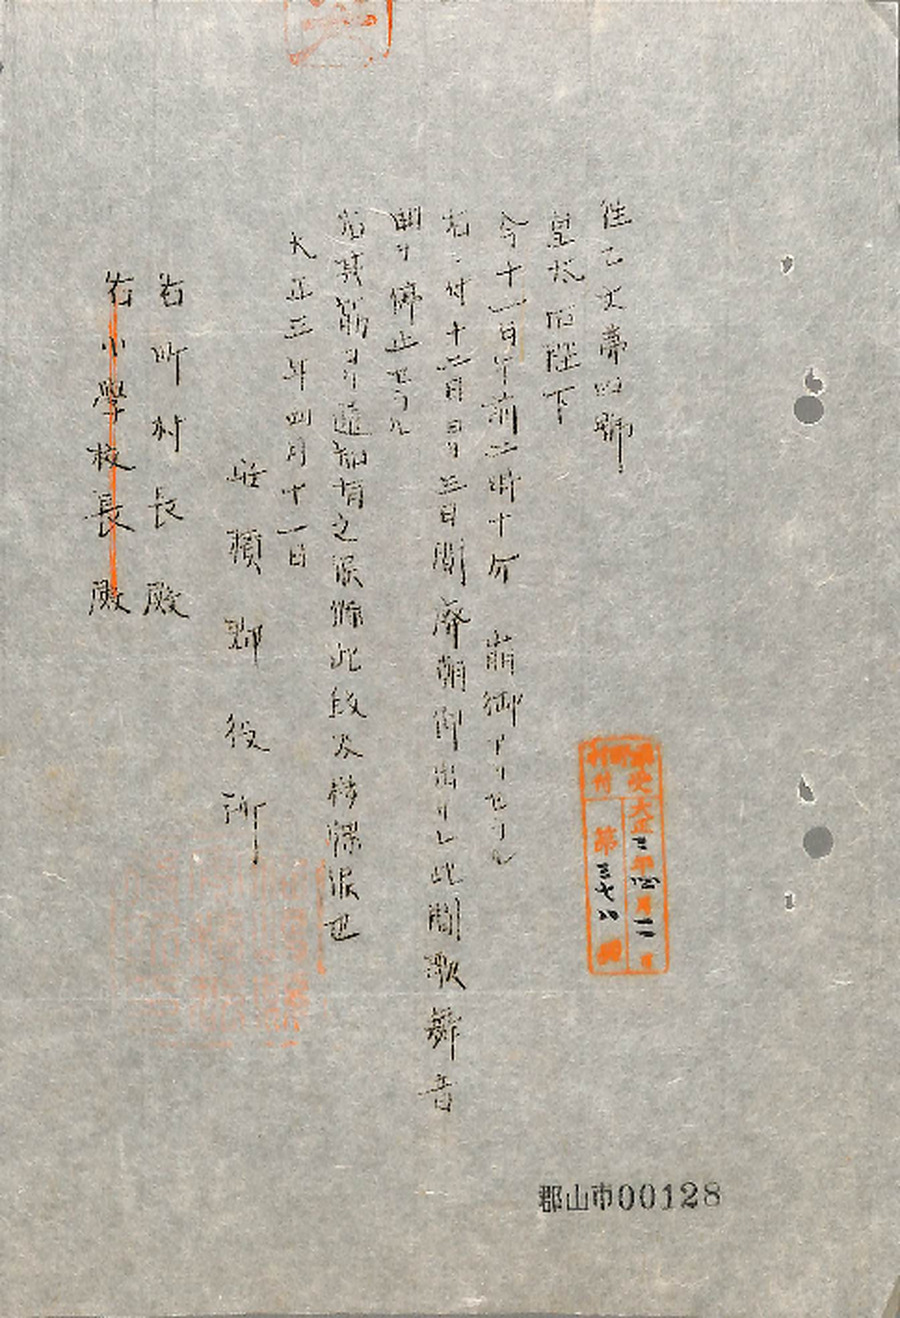 往乙文第四號
皇太后陛下
今十一日午前二時十分 崩御アラセラル
右ニ付十二日ヨリ三日間廢朝仰出サレ此間歌舞音
曲ヲ停止セラル
右其筋ヨリ通知有之候條此段及移牒候也
大正三年四月十一日
安積郡役所
右町村長殿
右小學校長殿
大正三年四月11日
第三七八號
郡山市00128